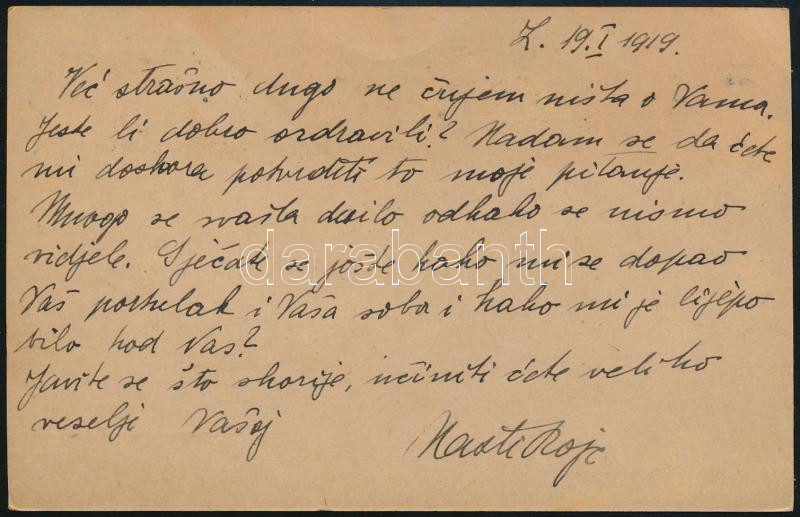 Z. 19.I 1919.
Već strašno dugo ne čujem ništa o Vama.
Jeste li dobro ozdravili? Nadam se da ćete
mi doskora potvrditi to moje pitanje.
Mnogo se svašta desilo odkako se nismo
vidjele. Sjećate se jošte kako mi se dopao
Vaš portulak i Vaša soba i kako mi je lijepo
bilo kod Vas?
Javite se što skorije, učiniti ćete veliko
veselje Vašoj
darabanth